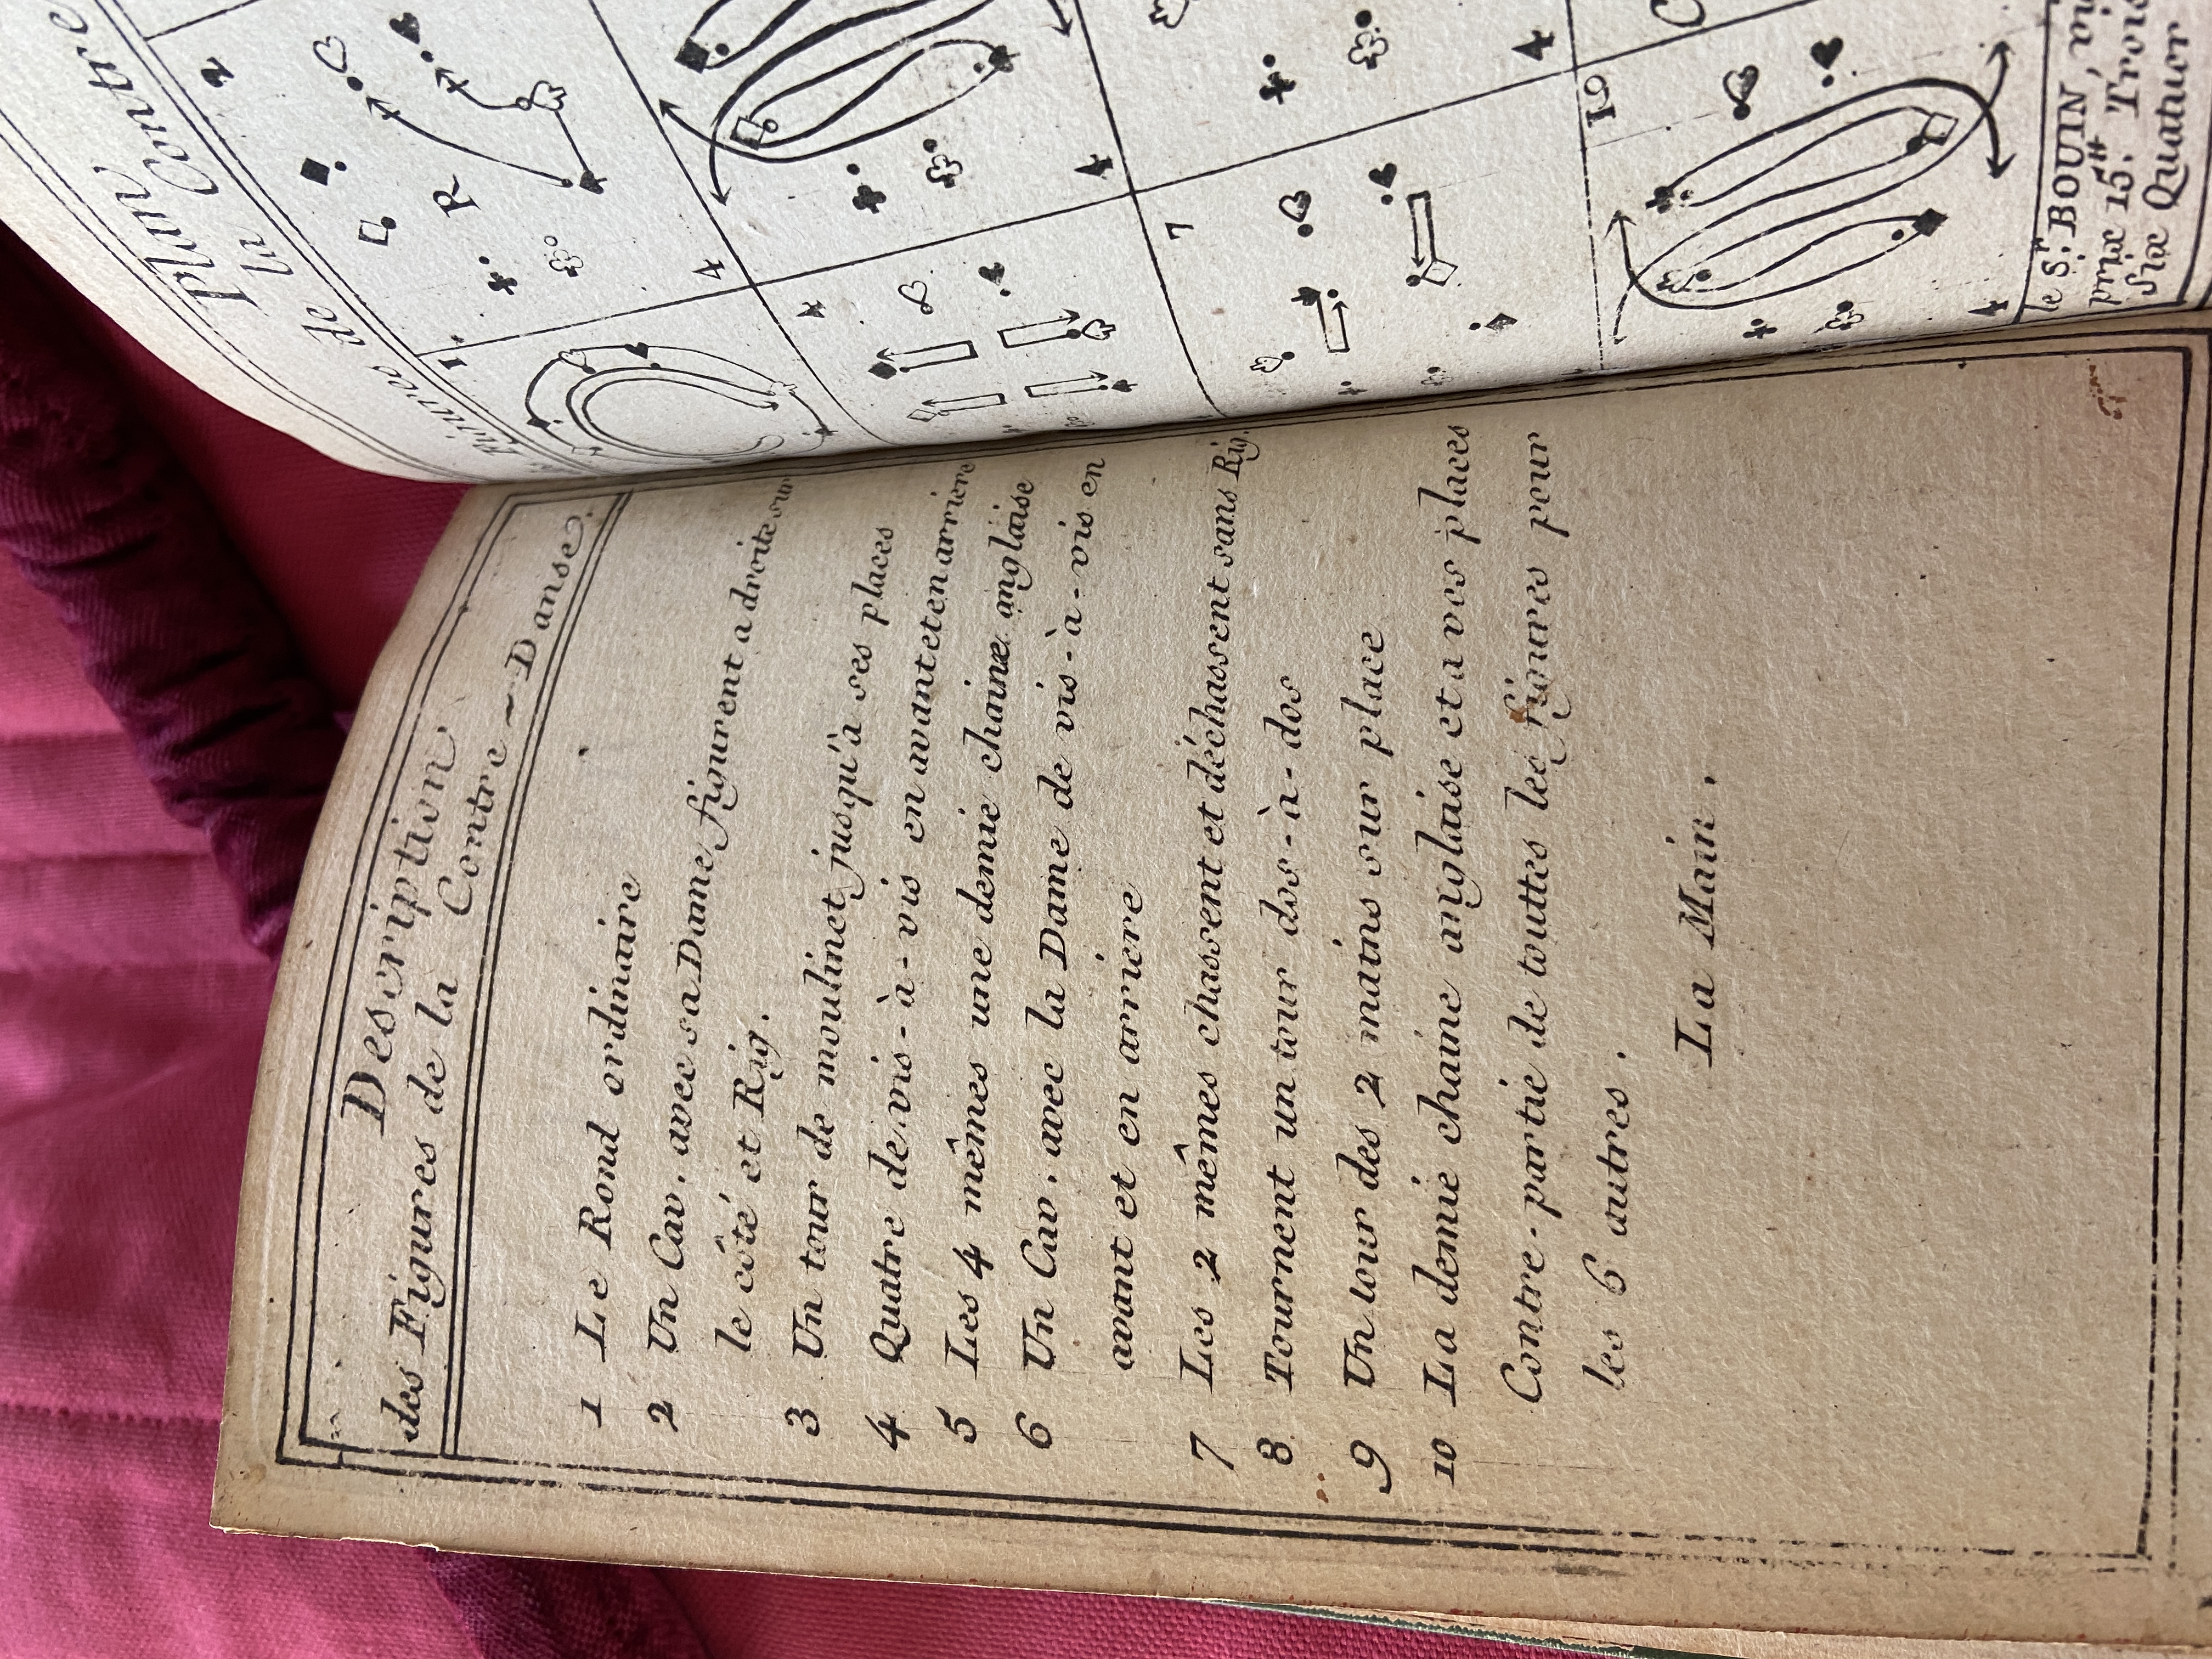 Description
des Figures de la Contre-Danse.
1 Le Rond ordinaire
2 Un Cav. avec sa Dame figurent a droite sur
le côté et Rig.
3 Un tour de moulinet jusqu'à ses places
4 Quatre de vis-à-vis en avant et en arriere
5 Les 4 mêmes une demie chaine anglaise
6 Un Cav. avec la Dame de vis-à-vis en
avant et en arriere
7 Les 2 mêmes chassent et déchassent sans Rig.
8 Tournent un tour dos-à-dos
9 Un tour des 2 mains sur place
10 La demie chaine anglaise et a vos places
Contre-partie de touttes les figures pour
les 6 autres.
La Main.
Plan
de la Contre
Figures
1
2
R
4
4
4
7
4
10
4
le Sr. BOUIN, 
prix 15.tt Trois
Six Quatuor